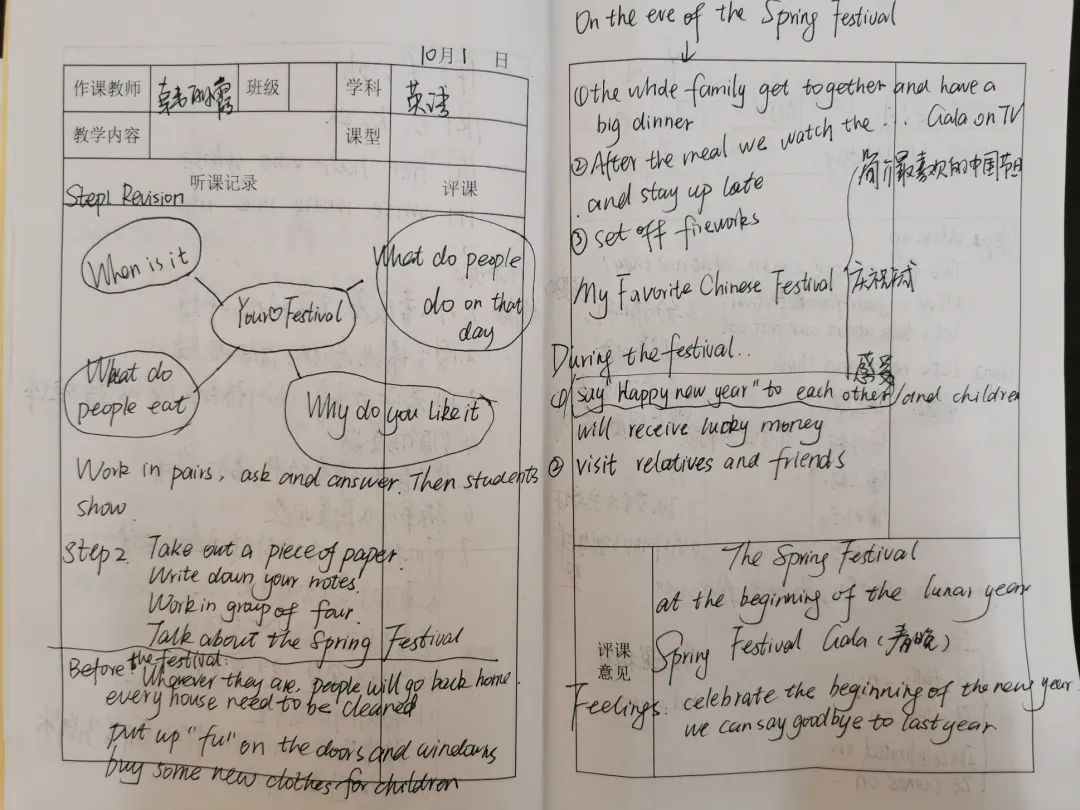 10月1 日
作课教师 韩丽霞 班级 学科 英语
教学内容 课型
听课记录 评课
Step1 Revision
When is it
What do people
do on that
day
Your♡Festival
What do
people eat
Why do you like it
Work in pairs, ask and answer. Then students
show.
Step 2. Take out a piece of paper.
Write down your notes.
Work in group of four.
Talk about the Spring Festival
Before the festival:
Wherever they are, people will go back home.
every house need to be cleaned
put up "fu" on the doors and windows
buy some new clothes for children
On the eve of the Spring Festival
↓
①the whole family get together and have a
big dinner
②After the meal we watch the ... Gala on TV
and stay up late
③ set off fireworks
简介最喜欢的中国节日
My Favorite Chinese Festival
庆祝方式
感受
During the festival..
① say "Happy new year" to each other/and children
will receive lucky money
② visit relatives and friends
评课
意见
The Spring Festival
at the beginning of the lunar year
Spring Festival Gala (春晚)
Feelings: celebrate the beginning of the new year.
we can say goodbye to last year